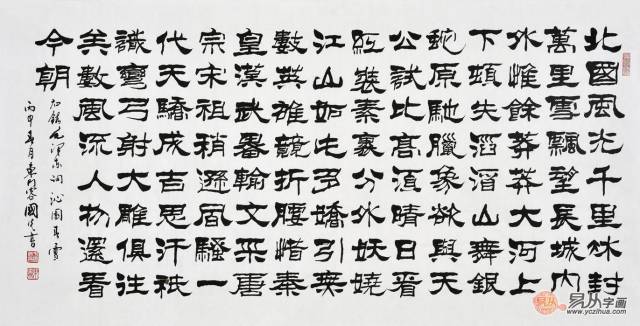 北國風光千里冰封
萬里雪飄望長城內
外惟餘莽莽大河上
下頓失滔滔山舞銀
蛇原馳臘象欲與天
公試比高須晴日看
紅裝素裹分外妖嬈
江山如此多嬌引無
數英雄競折腰惜秦
皇漢武畧輸文采唐
宗宋祖稍遜風騷一
代天驕成吉思汗祇
識彎弓射大雕俱往
矣數風流人物還看
今朝
錄毛澤東詞沁園春雪
丙申春月國書
易从字画
www.yczihua.com